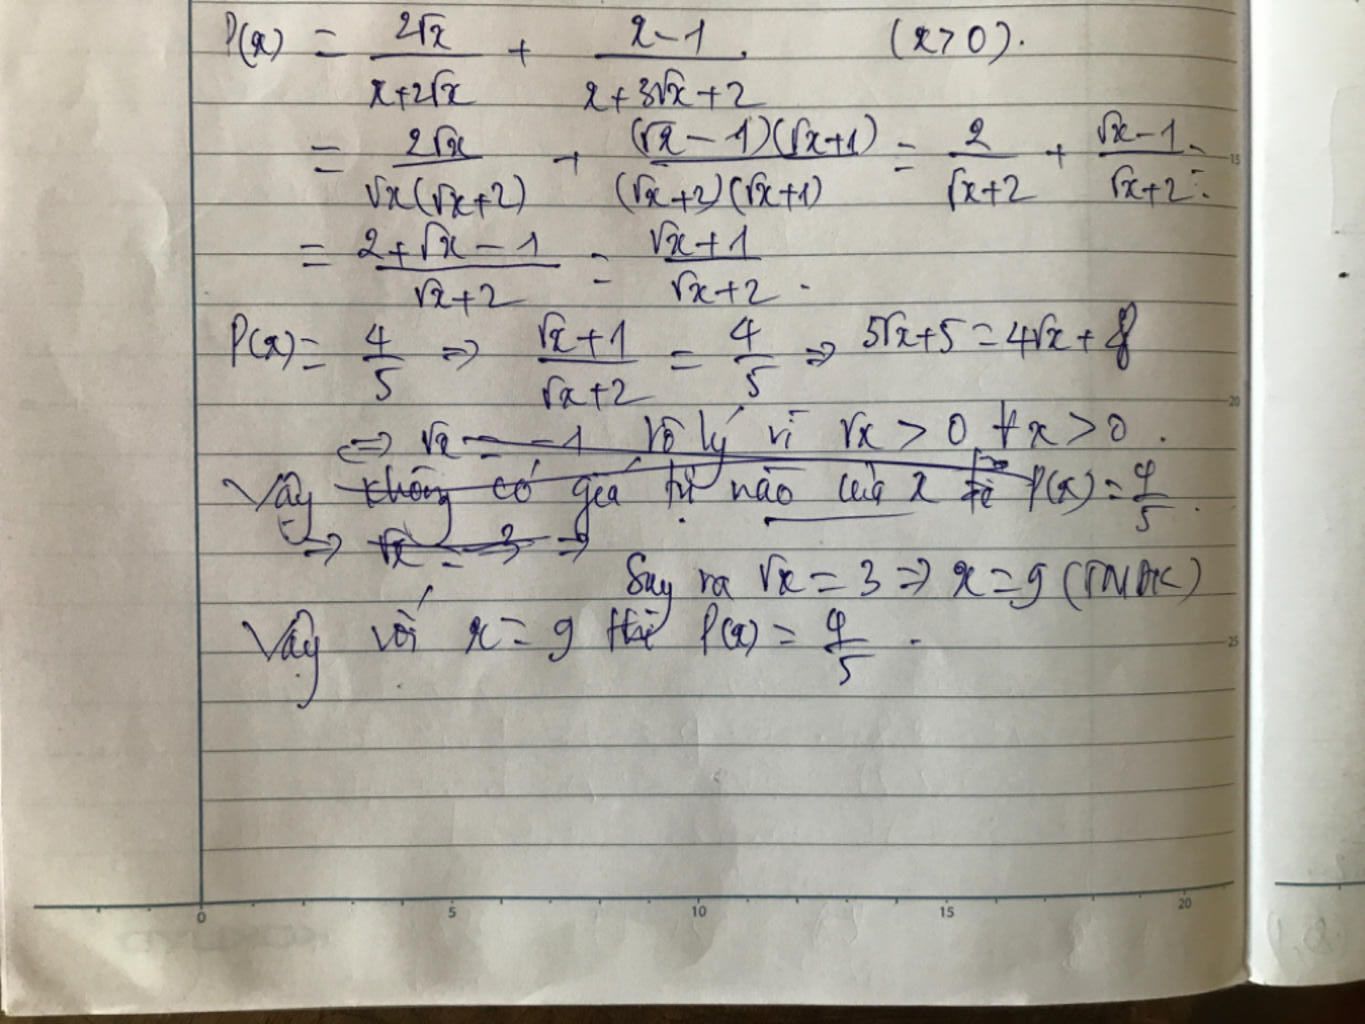 P(x) = 2√x / (x+2√x) + (x-1) / (x+3√x+2). (x>0).
= 2√x / (√x(√x+2)) + (√x-1)(√x+1) / ((√x+2)(√x+1)) = 2 / (√x+2) + (√x-1) / (√x+2) =
= (2+√x-1) / (√x+2) = (√x+1) / (√x+2).
P(x) = 4/5 => (√x+1) / (√x+2) = 4/5 => 5√x+5 = 4√x+8
<=> √x = -1 Vô lý vì √x > 0 ∀x > 0.
Vậy không có giá trị nào của x để P(x) = 4/5.
=> √x = 3 =>
Suy ra √x = 3 => x = 9 (TMĐK)
Vậy với x = 9 thì P(x) = 4/5.
0 5 10 15 20
15
20
25